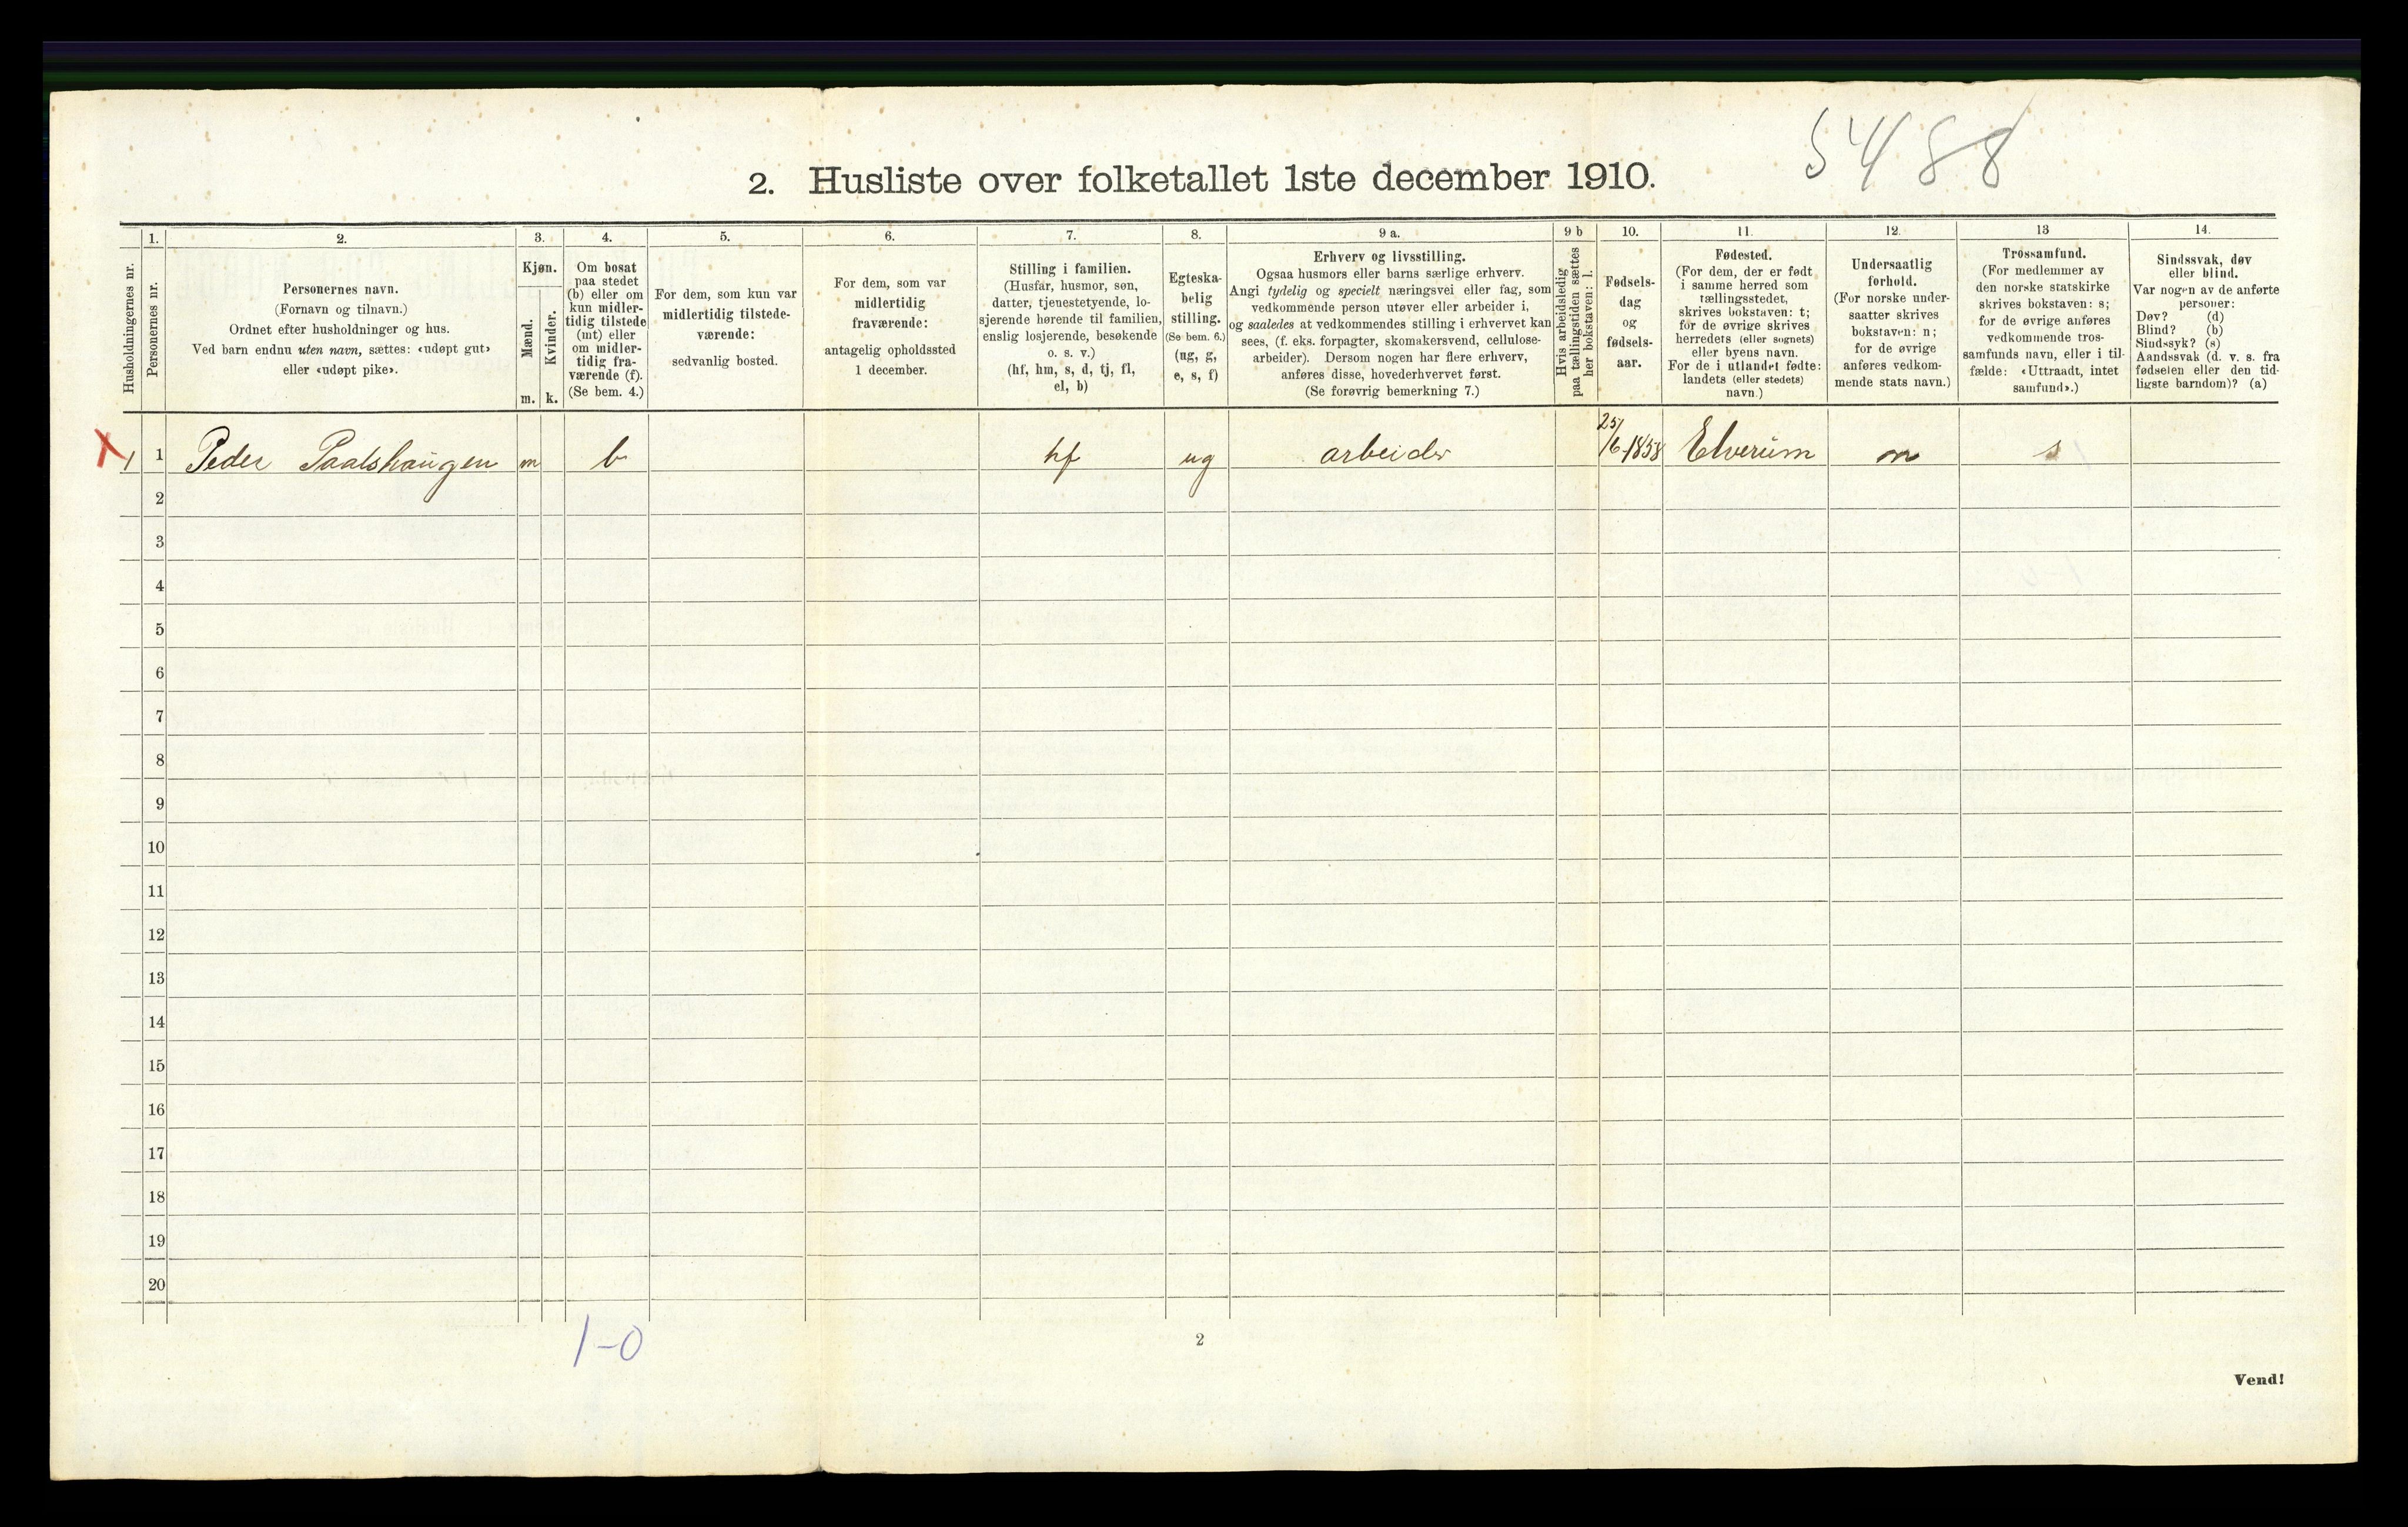 5488
2. Husliste over folketallet 1ste december 1910.
Husholdningernes nr.
1.
Personernes nr.
2.
Personernes navn.
(Fornavn og tilnavn.)
Ordnet efter husholdninger og hus.
Ved barn endnu uten navn, sættes: «udøpt gut»
eller «udøpt pike».
3.
Kjøn.
Mænd.
Kvinder.
m. k.
4.
Om bosat
paa stedet
(b) eller om
kun midler-
tidig tilstede
(mt) eller
om midler-
tidig fra-
værende (f).
(Se bem. 4.)
5.
For dem, som kun var
midlertidig tilstede-
værende:
sedvanlig bosted.
6.
For dem, som var
midlertidig
fraværende:
antagelig opholdssted
1 december.
7.
Stilling i familien.
(Husfar, husmor, søn,
datter, tjenestetyende, lo-
sjerende hørende til familien,
enslig losjerende, besøkende
o. s. v.)
(hf, hm, s, d, tj, fl,
el, b)
8.
Egteska-
belig
stilling.
(Se bem. 6.)
(ug, g,
e, s, f)
9 a.
Erhverv og livsstilling.
Ogsaa husmors eller barns særlige erhverv.
Angi tydelig og specielt næringsvei eller fag, som
vedkommende person utøver eller arbeider i,
og saaledes at vedkommendes stilling i erhvervet kan
sees, (f. eks. forpagter, skomakersvend, cellulose-
arbeider). Dersom nogen har flere erhverv,
anføres disse, hovederhvervet først.
(Se forøvrig bemerkning 7.)
9 b
Hvis arbeidsledig
paa tællingstiden sættes
her bokstaven: l.
10.
Fødsels-
dag
og
fødsels-
aar.
11.
Fødested.
(For dem, der er født
i samme herred som
tællingsstedet,
skrives bokstaven: t;
for de øvrige skrives
herredets (eller sognets)
eller byens navn.
For de i utlandet fødte:
landets (eller stedets)
navn.)
12.
Undersaatlig
forhold.
(For norske under-
saatter skrives
bokstaven: n;
for de øvrige
anføres vedkom-
mende stats navn.)
13
Trossamfund.
(For medlemmer av
den norske statskirke
skrives bokstaven: s;
for de øvrige anføres
vedkommende tros-
samfunds navn, eller i til-
fælde: «Uttraadt, intet
samfund».)
14.
Sindssvak, døv
eller blind.
Var nogen av de anførte
personer:
Døv? (d)
Blind? (b)
Sindssyk? (s)
Aandssvak (d. v. s. fra
fødselen eller den tid-
ligste barndom)? (a)
X 1 1 Peder Paalshaugen m b hf ug arbeider 25/6-1858 Elverum n s
2
3
4
5
6
7
8
9
10
11
12
13
14
15
16
17
18
19
20
1-0
2
Vend!